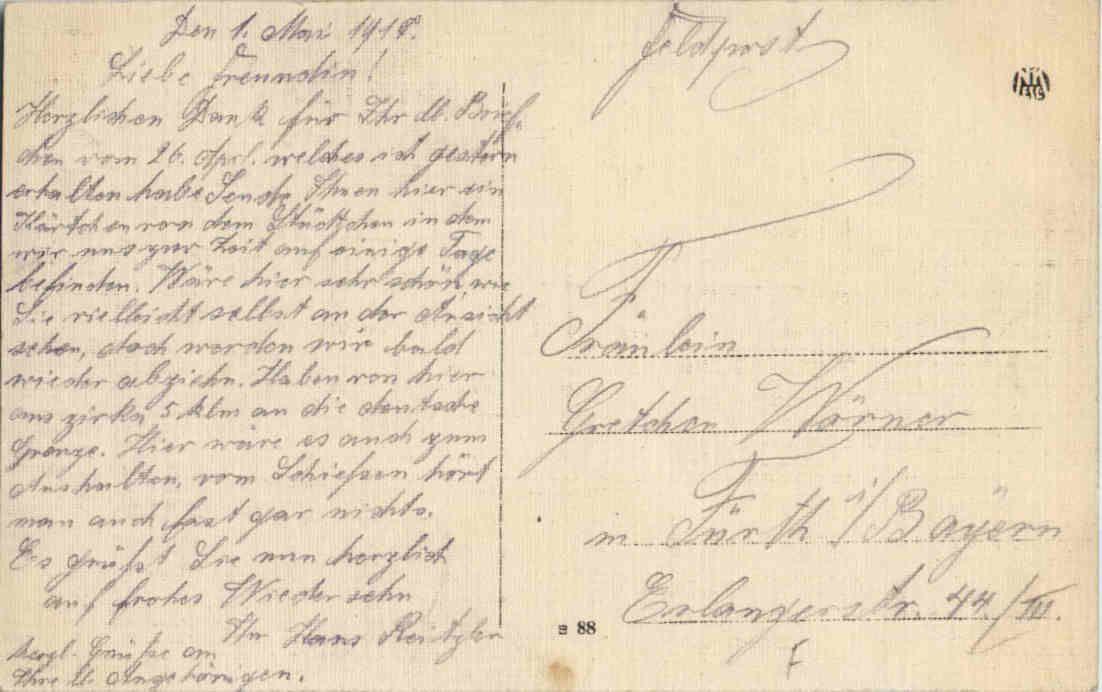 Den 1. Mai 1918.
Liebe Freundin!
Herzlichen Dank für Ihr lb. Brief-
chen vom 26. Aprl. welches ich gestern
erhalten habe Sende Ihnen hier ein
Kärtchen von dem Städtchen in dem
wir uns zur Zeit auf einige Tage
befinden. Wäre hier sehr schön wie
Sie vielleicht selbst an der Ansicht
sehen, doch werden wir bald
wieder abziehn. Haben von hier
aus zirka 5 klm an die deutsche
Grenze. Hier wäre es auch zum
Aushalten, vom Schießen hört
man auch fast gar nichts.
Es grüßt Sie nun herzlich
auf frohes Wiedersehn
Ihr Hans
herzl. Grüße an
Ihre lb. Angehörigen.
Feldpost
Fräulein
Gretchen Wörner
in Fürth i/Bayern
Erlangerstr. 44/III.
88